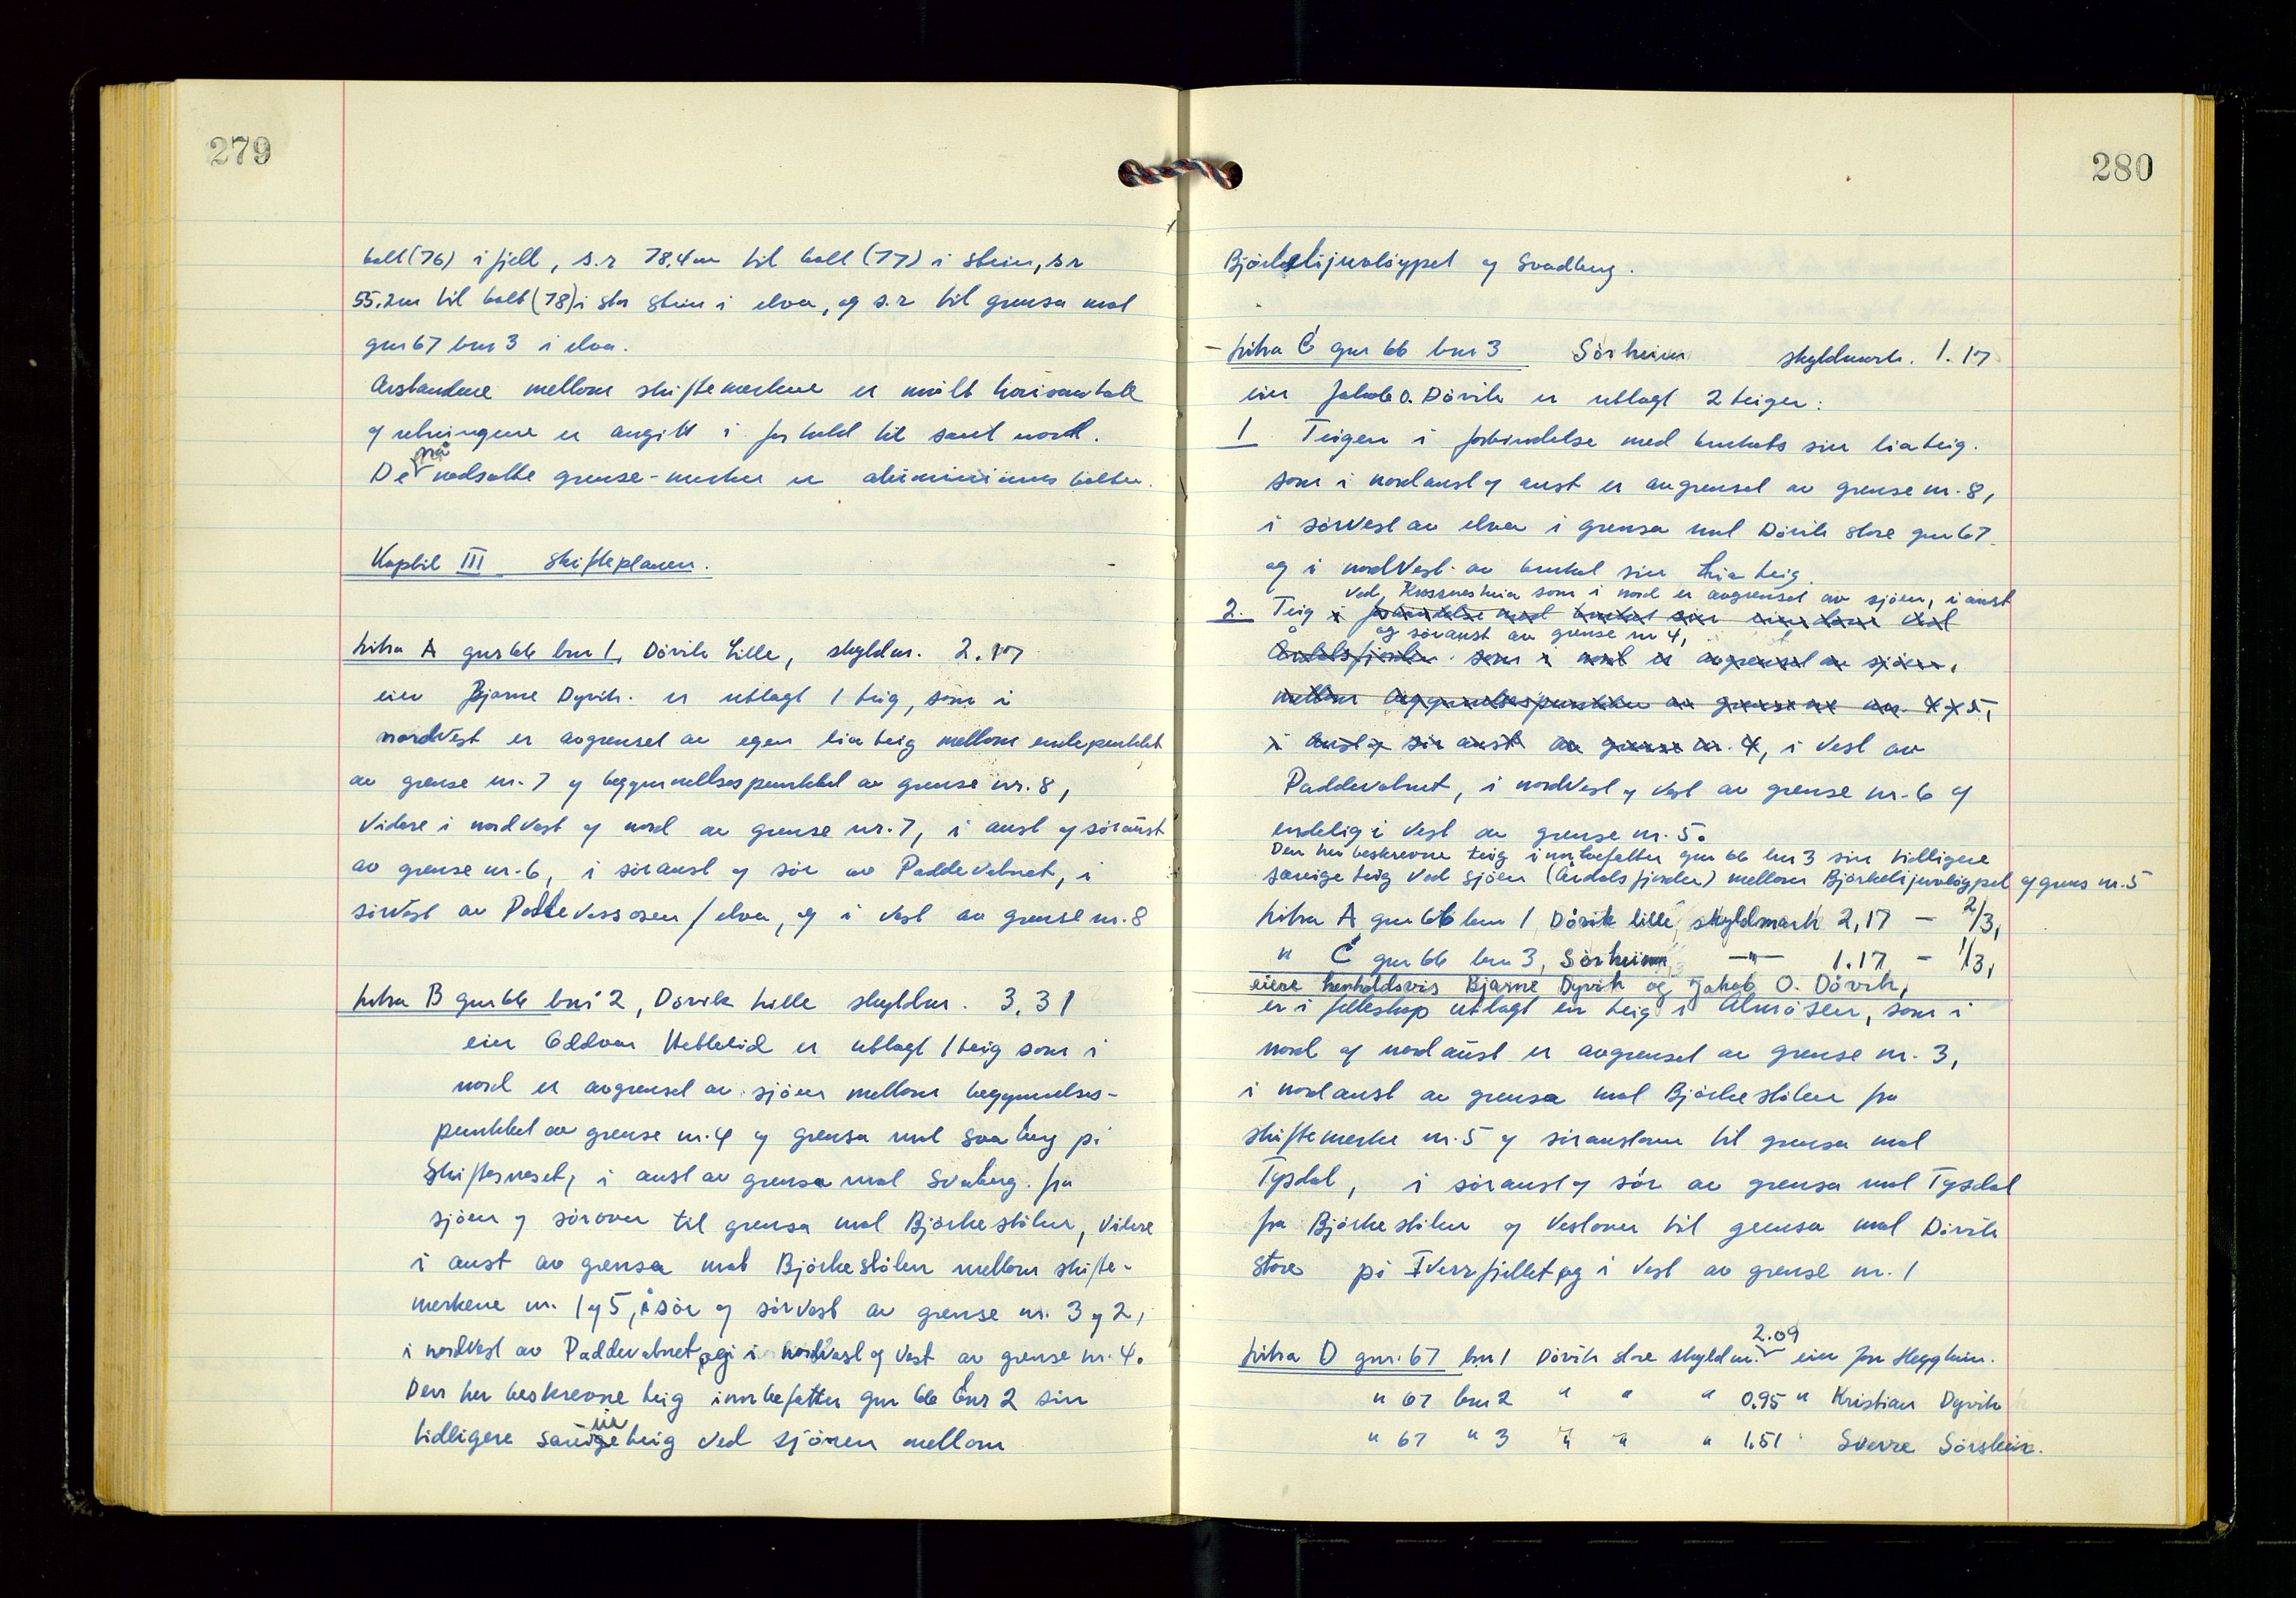 279
bolt (76) i fjell, s.r 78,4m til bolt (77) i stein, s.r
55.2m til bolt (78) i stor stein i elva, og s.r til grensa mot
gnr 67 bnr 3 i elva.
Avstandene mellom skiftemerkene er målt horisontalt
og retningene er angitt i forhold til sant nord.
De nå nedsatte grense-merker er aluminiums bolter.
Kapitel III Skifteplanen.
Litra A gnr 66 bnr 1, Dövik Lille, skyldm. 2.17
eier Bjarne Dyvik. er utlagt 1 teig, som i
nordvest er avgrenset av egen lia teig mellom endepunktet
av grense nr. 7 og begynnellsespunktet av grense nr. 8,
Videre i nordvest og nord av grense nr. 7, i aust og söraust
av grense nr. 6, i söraust og sör av Paddevatnet, i
sörvest av Paddevassosen / elva, og i vest av grense nr. 8
Litra B gnr 66 bnr 2, Dövik Lille skyldm. 3.31
eier Oddvar Hetlelid er utlagt 1 teig som i
nord er avgrenset av sjöen mellom begynnelses-
punktet av grense nr. 4 og grensa mot Svaberg på
Skiftesneset, i aust av grensa mot Svaberg. fra
sjöen og sörover til grensa mot Björkestölen, videre
i aust av grensa mot Björkestölen mellom skifte-
merkene nr. 1 og 5, i sör og sörvest av grense nr. 3 og 2,
i nordvest av Paddevatnet, og i nordvest og vest av grense nr. 4.
Den her beskrevne teig innbefatter gnr 66 bnr 2 sin
tidligere særeige teig ved sjöen mellom
280
Björkelijuvlöypet og Svadberg.
Litra C gnr 66 bnr 3 Sörheim skyldmark. 1.17
eier Jakob O. Dövik er utlagt 2 teiger:
1 Teigen i forbindelse med brukets sin lia teig.
som i nordaust og aust er avgrenset av grense nr. 8,
i sörvest av elva i grensa mot Dövik store gnr 67
og i nordvest av bruket sin Lia teig.
ved Krossnesheia som i nord er avgrenset av sjöen, i aust
2. Teig i forbindelse med bruket sin eiendom ved
og söraust av grense nr 4,
Årdalsfjorden. som i nord er avgrenset av sjöen,
mellom begynnelsespunkten av grensene nr. 4 og 5,
i aust og sör aust av grense nr. 4, i vest av
Paddevatnet, i nordvest og vest av grense nr. 6 og
endelig i vest av grense nr. 5.
Den her beskrevne teig innbefatter gnr 66 bnr 3 sin tidligere
særeige teig ved sjöen (Årdalsfjorden) mellom Björkelijuvlöypet og grens nr. 5
Litra A gnr 66 bnr 1 Dövik lille skyldmark 2,17 – 2/3,
" C gnr 66 bnr 3, Sörheim, —"— 1.17 – 1/3,
eiere henholdsvis Bjarne Dyvik og Jakob O. Dövik,
er i felleskap utlagt en teig i Almåsen, som i
nord og nordaust er avgrenset av grense nr. 3,
i nordaust av grensa mot Björkestölen fra
skiftemerke nr. 5 og söraustover til grensa mot
Tysdal, i söraust og sör av grensa mot Tysdal
fra Björkestölen og vestover til grensa mot Dövik
store på Tverrfjellet, og i vest av grense nr. 1
Litra D gnr. 67 bnr 1 Dövik store skyldm. 2.09 eier Jon Heggheim.
" 67 bnr 2 " " " 0.95 " Kristian Dyvik
" 67 " 3 " " " 1.51 " Sverre Sörskeie.